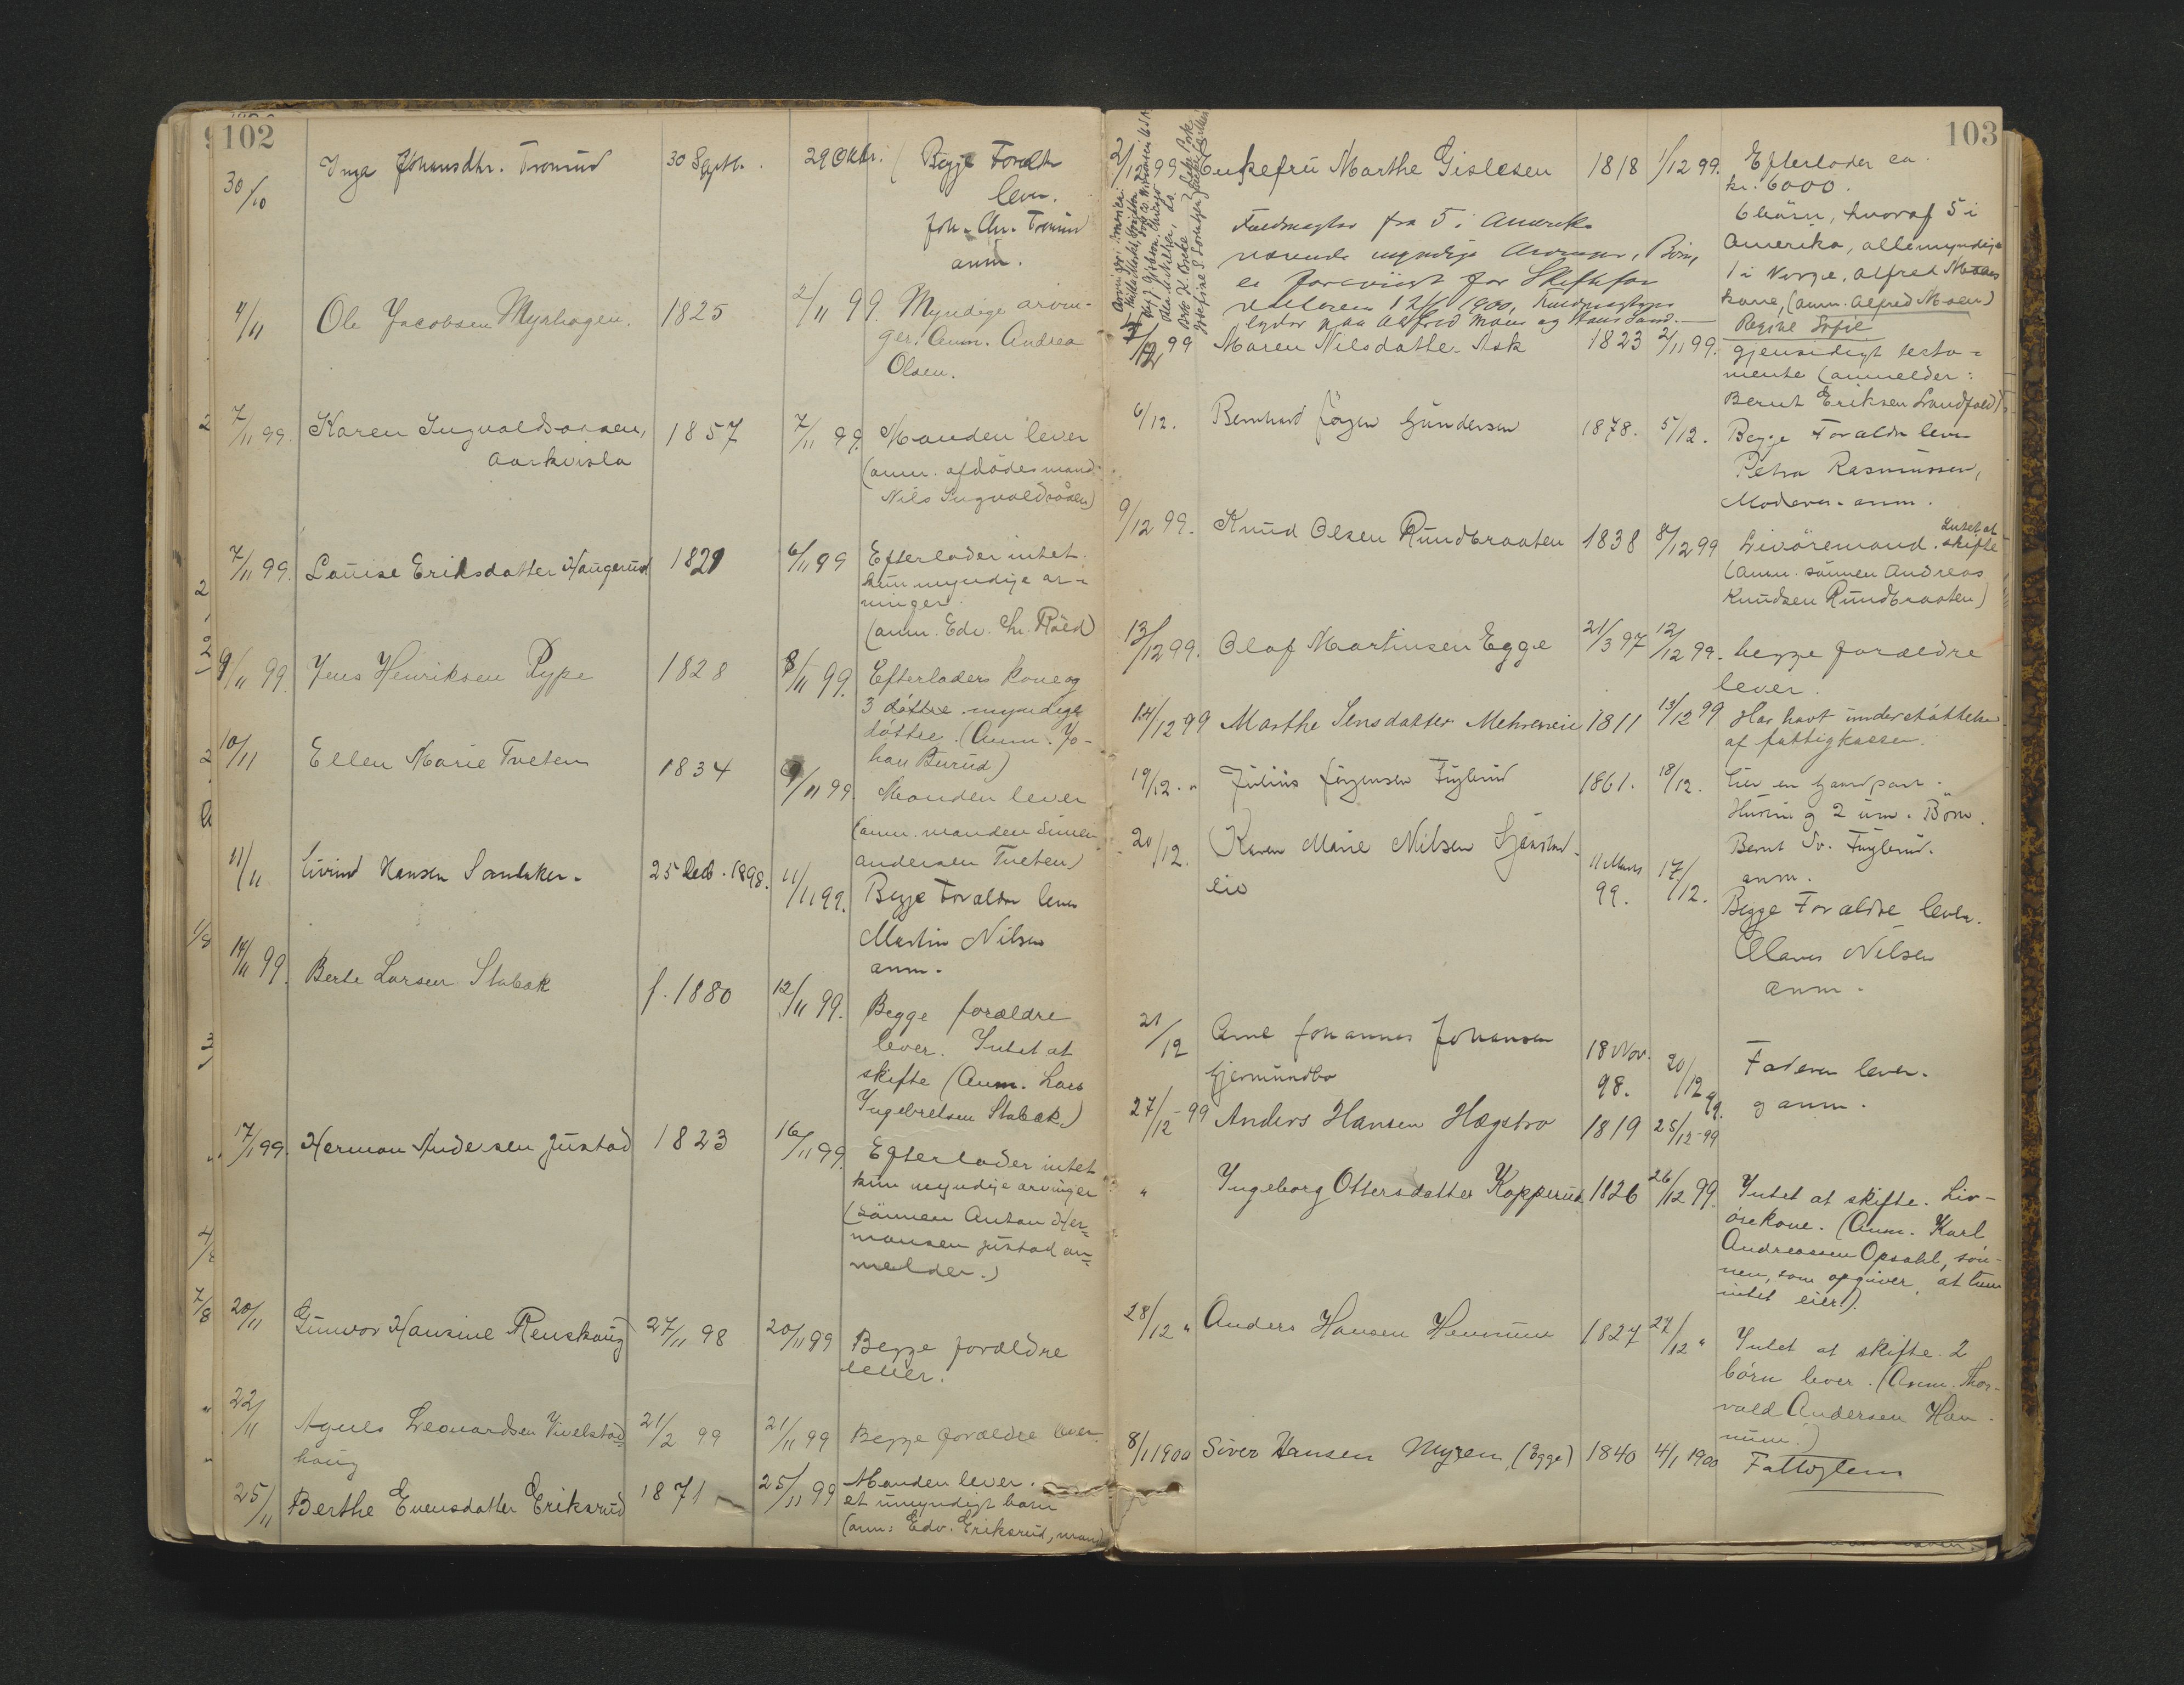 102
30/10 Inga Johansdtr. Tronrud 30 Septb. 29 Oktbr. Begge Foreldr
lever.
Joh. An. Tronrud
anm.
4/11 Ole Jacobsen Myrhagen. 1825 2/11 99. Myndige arvin-
ger. Anm. Andrea
Olsen.
7/11 99. Karen Ingvaldsaasen, 1857 7/11 99. Manden lever
Aarkvisla (anm. afdødes mand
Nils Ingvaldsåsen)
7/11 99. Louise Eriksdatter Haugerud 1821 6/11 99 Efterlader intet.
kun myndige ar-
vinger.
(anm. Edv. Chr. Röed)
9/11 99. Jens Henriksen Rype 1828 8/11 99. Efterladers kone og
3 døttre myndige
døttre. (Anm. Jo-
han Burud)
10/11 Ellen Marie Tveten 1834 9/11 99. Manden lever
(anm. manden Simen
Andersen Tveten)
11/11 Eivind Hansen Sandaker. 25 Decb. 1898. 11/11 99. Begge Forældre lever
Martin Nilsen
anm.
14/11 99. Berte Larsen Stabæk f. 1880 12/11 99. Begge forældre
lever. Intet at
skifte (Anm. Lars
Ingebretsen Stabæk.)
17/11 99. Herman Andersen Justad 1823 16/11 99. Efterlader intet
kun myndige arvinger
(sønnen Anton Her-
mansen Justad an-
melder.)
20/11 Gunvor Hansine Renskoug 27/11 98 20/11 99 Begge forældre
lever.
22/11 Agnes Leonardsen Vivelstad- 21/2 99 21/11 99 Begge forældre lever.
houg
25/11 Berthe Evensdatter Eriksrud 1871 25/11 99 Manden lever.
et umyndigt barn
(anm: Edv. Eriksrud, mand)
103
2/12 99. Enkefru Marthe Gislesen 1818 1/12 99. Efterlader ca.
kr. 6000.
6 børn, hvoraf 5 i
Amerika, alle myndige
1 i Norge, Alfred Moens
kone, (anm. Alfred Moen)
Regine Sofie
Fuldmagter fra 5 i Amerika
værende myndige Arvinger, Børn,
er forevist for Skifteforvalteren 12/1 1900, Fuldmagten
lyder paa Alfred Moen og Hans Sand.
2/12 99 Maren Nilsdatter Ask 1823 2/11 99. gjensidigt testa-
mente (anmelder:
Bernt Eriksen Landfald)
6/12. Bernhard Jørgen Gundersen 1878. 5/12. Begge Forældre lever
Petra Rasmussen,
Moderen anm.
9/12 99. Knud Olsen Rundbraaten 1838 8/12 99 Livøremand. Intet at skifte
(Anm. sønnen Andreas
Knudsen Rundbraaten)
13/12 99. Olaf Martinsen Egge 21/3 97 12/12 99. begge forældre
lever.
14/12 99 Marthe Jensdatter Mehrenseie 1811 13/12 99 Har havt understøttelse
af fattigkassen.
19/12. " Julius Jørgensen Fuglerud 1861. 18/12. Eier en Gaardpart.
Hustru og 2 um. Børn.
Bernt Sv. Fuglerud.
anm.
20/12. Karen Marie Nilsen Gjørstad- 11 Marts 99. 17/12. Begge Forældre lever.
eie Olaves Nilsen
anm.
21/12 Arne Johannes Johansen 18 Nov. 98. 20/12 99. Faderen lever.
Gjermundbo og anm.
27/12-99 Anders Hansen Hægstro 1819 25/12-99
" Ingeborg Ottersdatter Kopperud 1826 26/12 99. Intet at skifte. Liv-
ørekone. (Anm. Karl
Andreassen Opsahl, søn-
nen, som opgiver, at hun
intet eier).
28/12 " Anders Hansen Hennum 1827 27/12 " Intet at skifte. 2
børn lever. (Anm. Thor-
vald Andersen Hen-
num.)
8/1 1900 Siver Hansen Myren (Egge) 1840 4/1 1900 Fattiglem